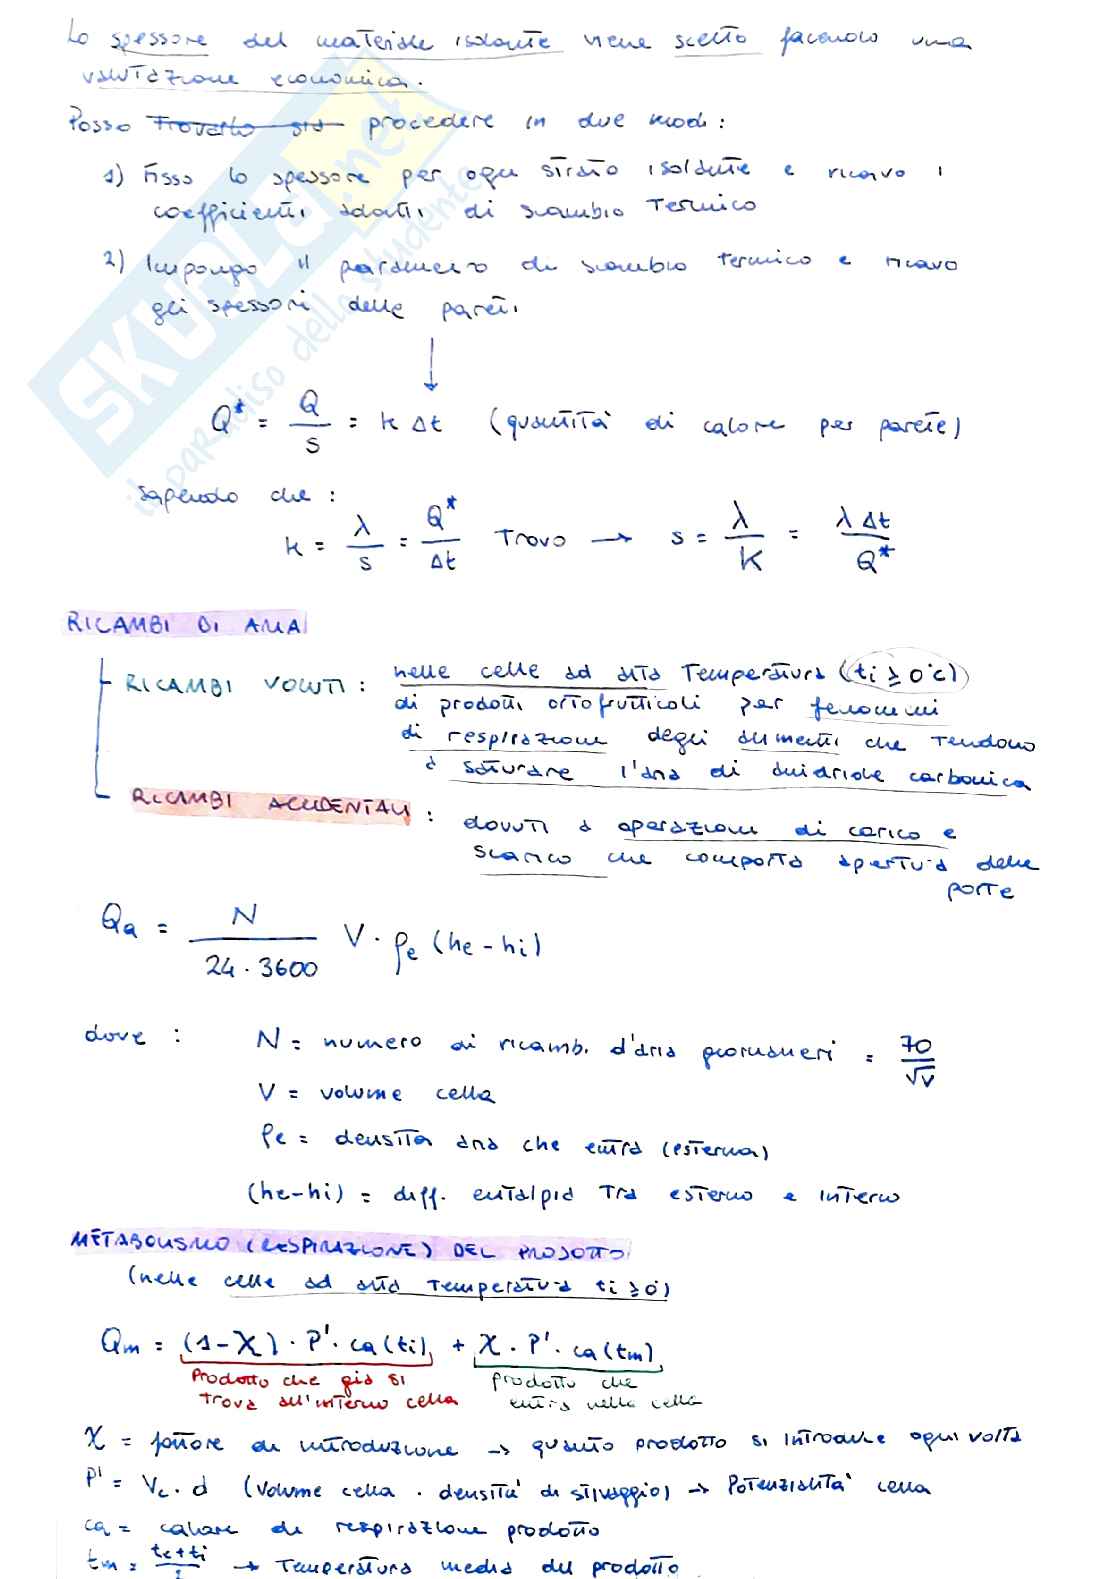 Lo spessore del materiale isolante viene scelto facendo una
valutazione economica.
Posso trovarlo già procedere in due modi:
1) Fisso lo spessore per ogni strato isolante e ricavo i
coefficienti adatti di scambio termico
2) Impongo il parametro di scambio termico e ricavo
gli spessori delle pareti.
Q* = Q/s = k Δt (quantità di calore per parete)
sapendo che:
k = λ/s = Q*/Δt Trovo → s = λ/K = λ Δt/Q*
RICAMBI DI ARIA
RICAMBI VOLUTI: nelle celle ad alta Temperatura (ti ≥ 0°C)
di prodotti ortofrutticoli per fenomeni
di respirazione degli alimenti che tendono
a saturare l'aria di anidride carbonica
RICAMBI ACCIDENTALI: dovuti a operazioni di carico e
scarico che comporta apertura delle
porte
Qa = N/(24·3600) V·ρe (he-hi)
dove: N = numero di ricamb. d'aria giornalieri = 70/√V
V = volume cella
ρe = densità aria che entra (esterna)
(he-hi) = diff. entalpia tra esterno e interno
METABOLISMO (RESPIRAZIONE) DEL PRODOTTO
(nelle celle ad alta temperatura ti ≥ 0)
Qm = (1-X)·P'·ca(ti) + X·P'·ca(tm)
Prodotto che già si prodotto che
trova all'interno cella entra nella cella
X = fattore di introduzione → quanto prodotto si introduce ogni volta
P' = Vc·d (volume cella · densità di stivaggio) → Potenzialità cella
ca = calore di respirazione prodotto
tm = te+ti/2 → Temperatura media del prodotto
SKUOLA.net
il paradiso dello studente